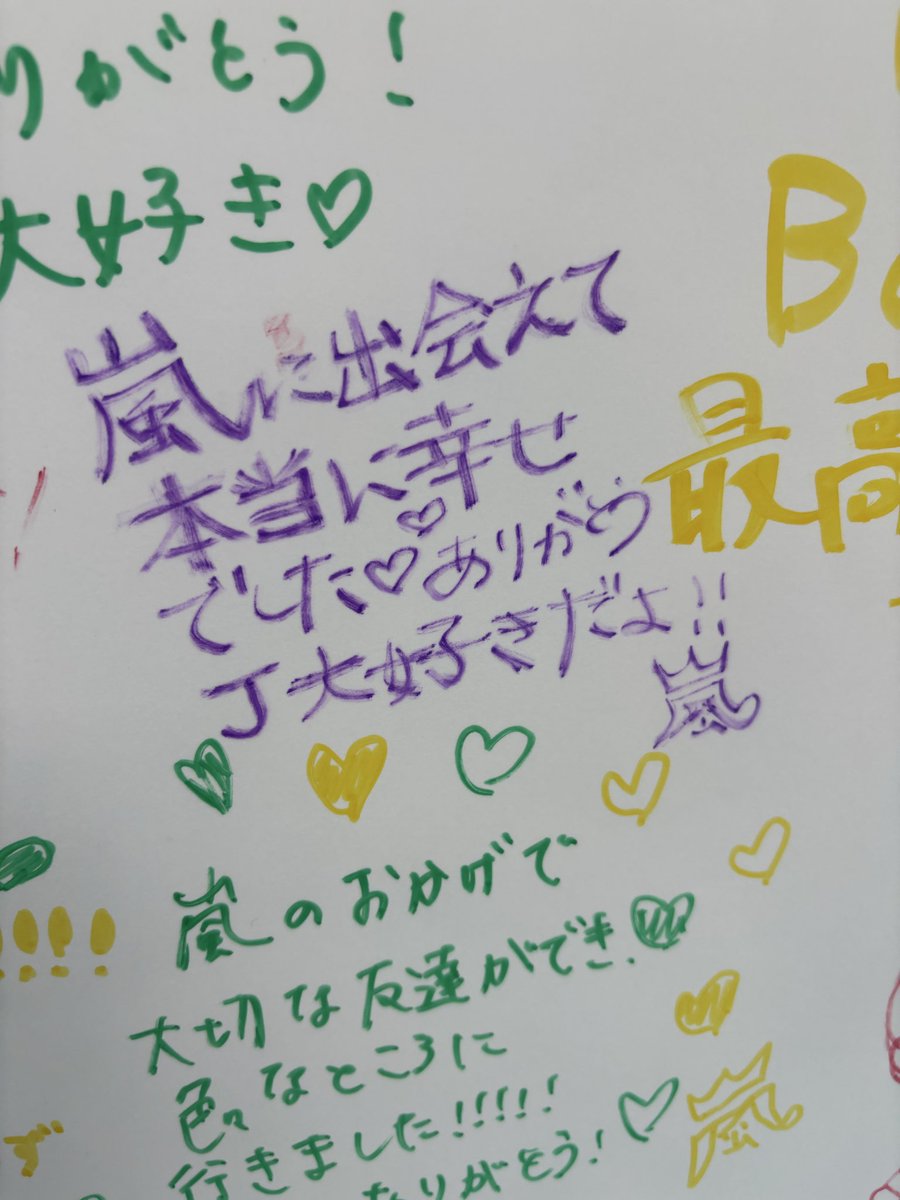 りがとう!
大好き♡
B
最高
嵐に出会えて
本当に幸せ
でした♡♡ありがとう
J大好きだよ!!
嵐
!!!!
嵐のおかげで
大切な友達ができ、
色々なところに
行きました!!!!!
ありがとう!♡
嵐
ず